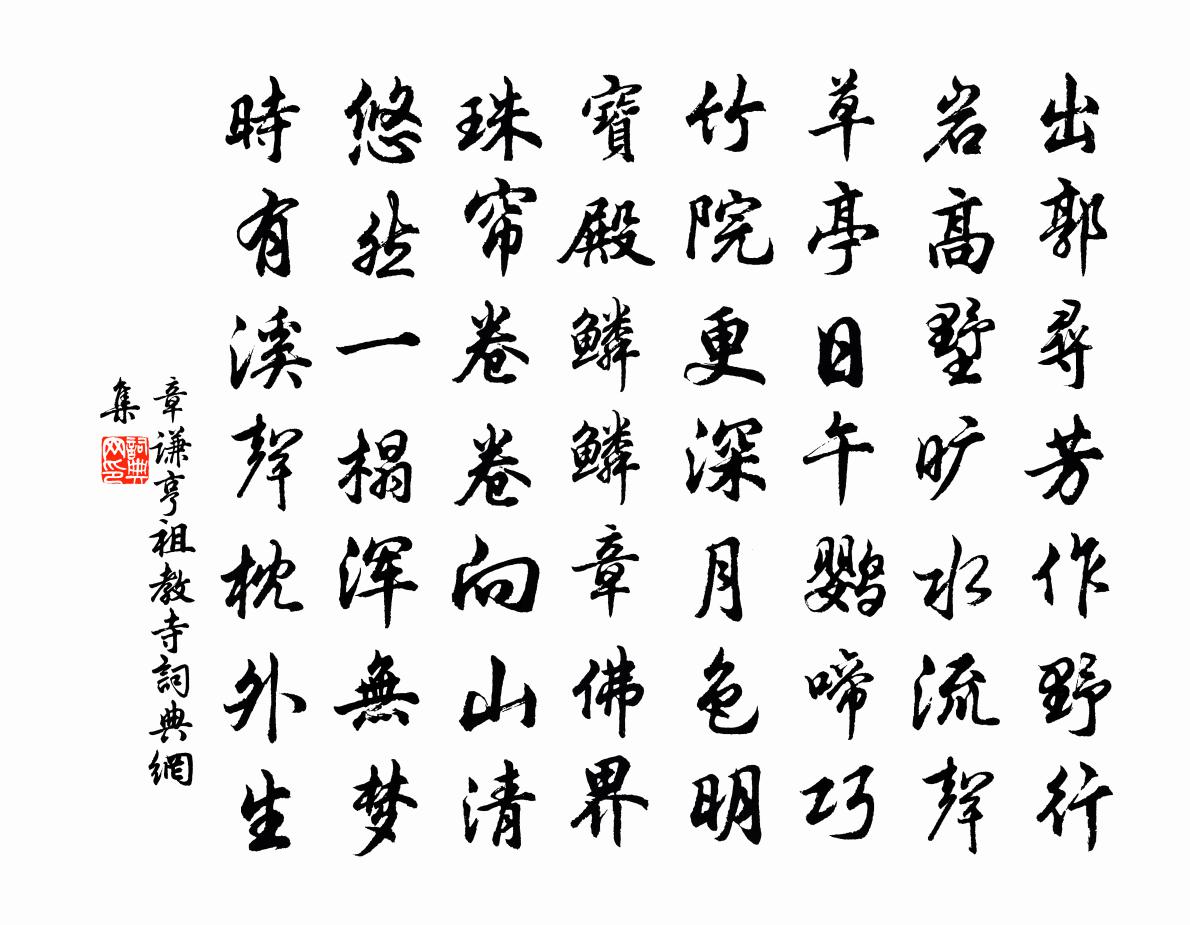 出郭尋芳作野行
岩高墅旷水流聲
草亭日午鹦啼巧
竹院更深月色明
寶殿鳞鳞章佛界
珠帘卷卷向山清
悠然一榻浑無梦
時有溪聲枕外生
章谦亨祖教寺詞典網
集
詞典网印